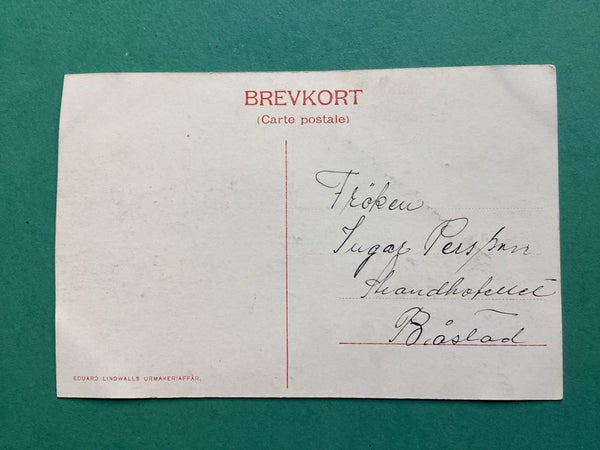 BREVKORT
(Carte postale)
Fröken
Persson
Strandhotellet
Båstad
EDUARD LINDWALLS URMAKERIAFFÄR.